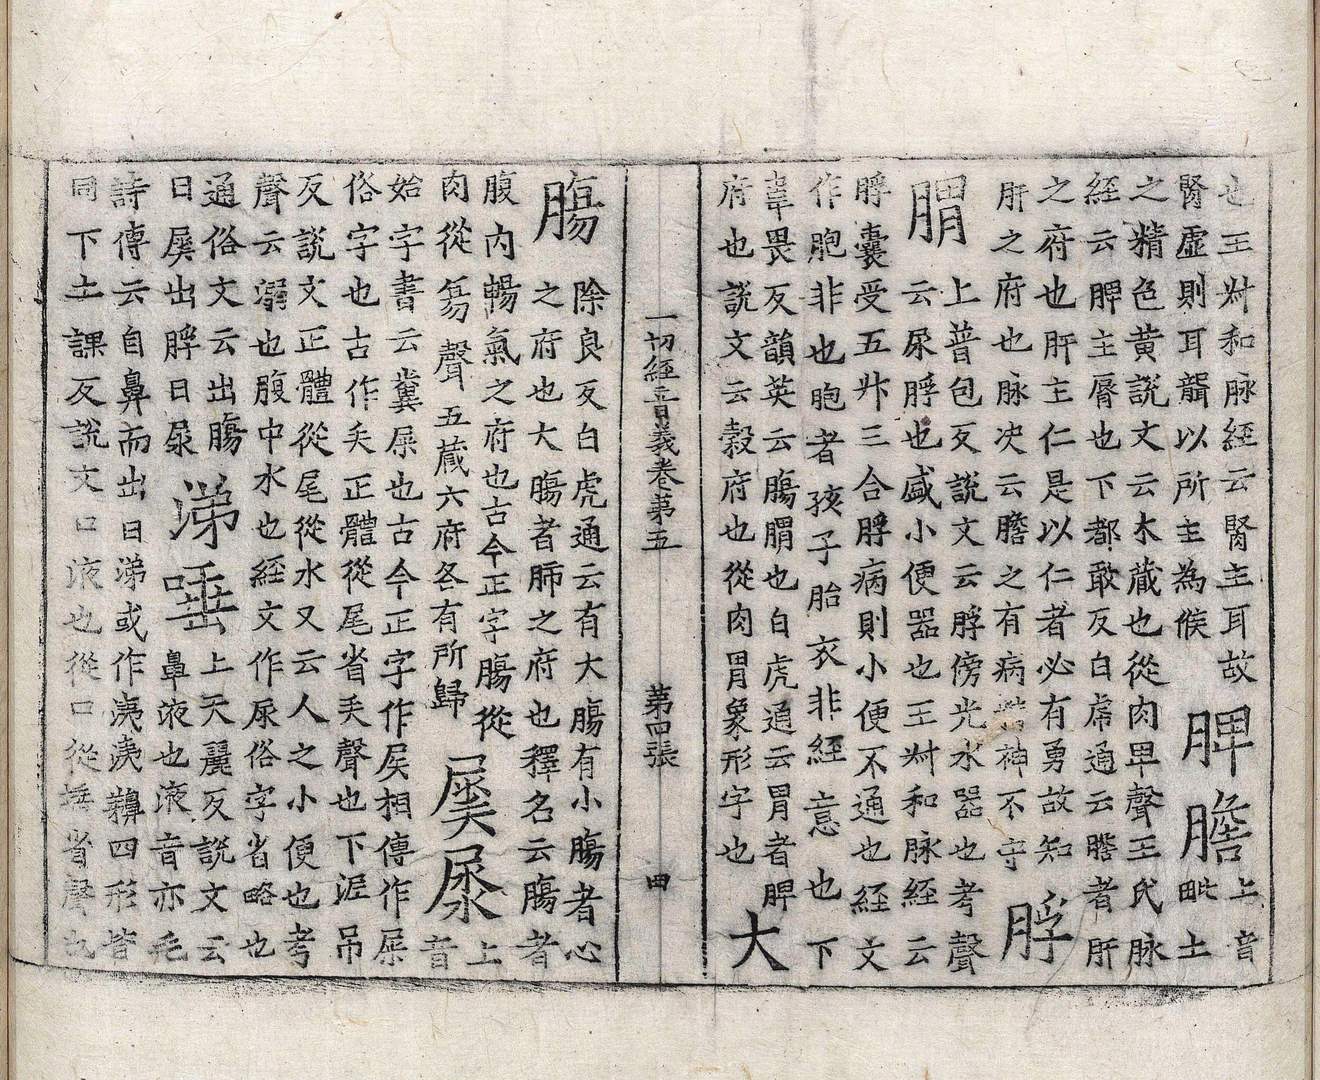 也王叔和脉經云腎主耳故
腎虛則耳聾以所主為候
脾膽
上音
毗
之精色黄說文云木蔵也從肉卑聲王氏脉
經云脾主脣也下都敢反白虎通云膽者肝
之府也肝主仁是以仁者必有勇故知
肝之府也脉决云膽之有病精神不守
脬
上普包反說文云脬傍光水器也考聲
云尿脬也盛小便器也王叔和脉經云
胃
脬囊受五升三合脬病則小便不通也經文
作胞非也胞者孩子胎衣非經意也下
韋畏反韻英云腸胃也白虎通云胃者脾
府也說文云穀府也從肉胃象形字也
大
一切經音義卷第五 第四張 田
腸
除良反白虎通云有大腸有小腸者心
之府也大腸者肺之府也釋名云腸者
腹内暢氣之府也古今正字腸從
肉從昜聲五蔵六府各有所歸
屎尿
上
音
始字書云糞屎也古今正字作屎相傳作屎
俗字也古作矢正體從尾省矢聲也下泥吊
反說文正體從尾從水又云人之小便也考
聲云溺也腹中水也經文作尿俗字省略也
通俗文云出腸
曰屎出脬曰尿
涕唾
上天麗反說文云
鼻液也液音亦毛
詩傳云自鼻而出曰涕或作洟洟四形皆
同下土課反說文口液也從口從埵省聲也